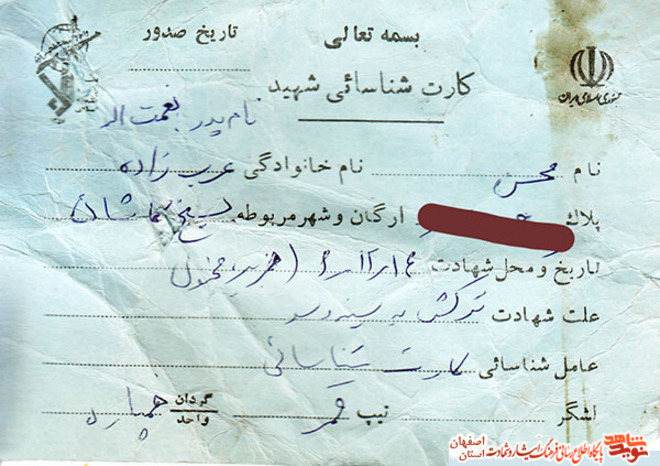 بسمه تعالی
تاریخ صدور
کارت شناسائی شهید
جمهوری اسلامی ایران
نام پدر نعمت اله
نام محسن نام خانوادگی عرب زاده
پلاک ارگان و شهر مربوطه بسیج
تاریخ و محل شهادت
علت شهادت ترکش به سینه و سر
عامل شناسائی کارت شناسائی
لشگر تیپ قمر گردان واحد خمپاره
نوید شاهد
پایگاه اطلاع رسانی فرهنگ ایثار و شهادت استان اصفهان